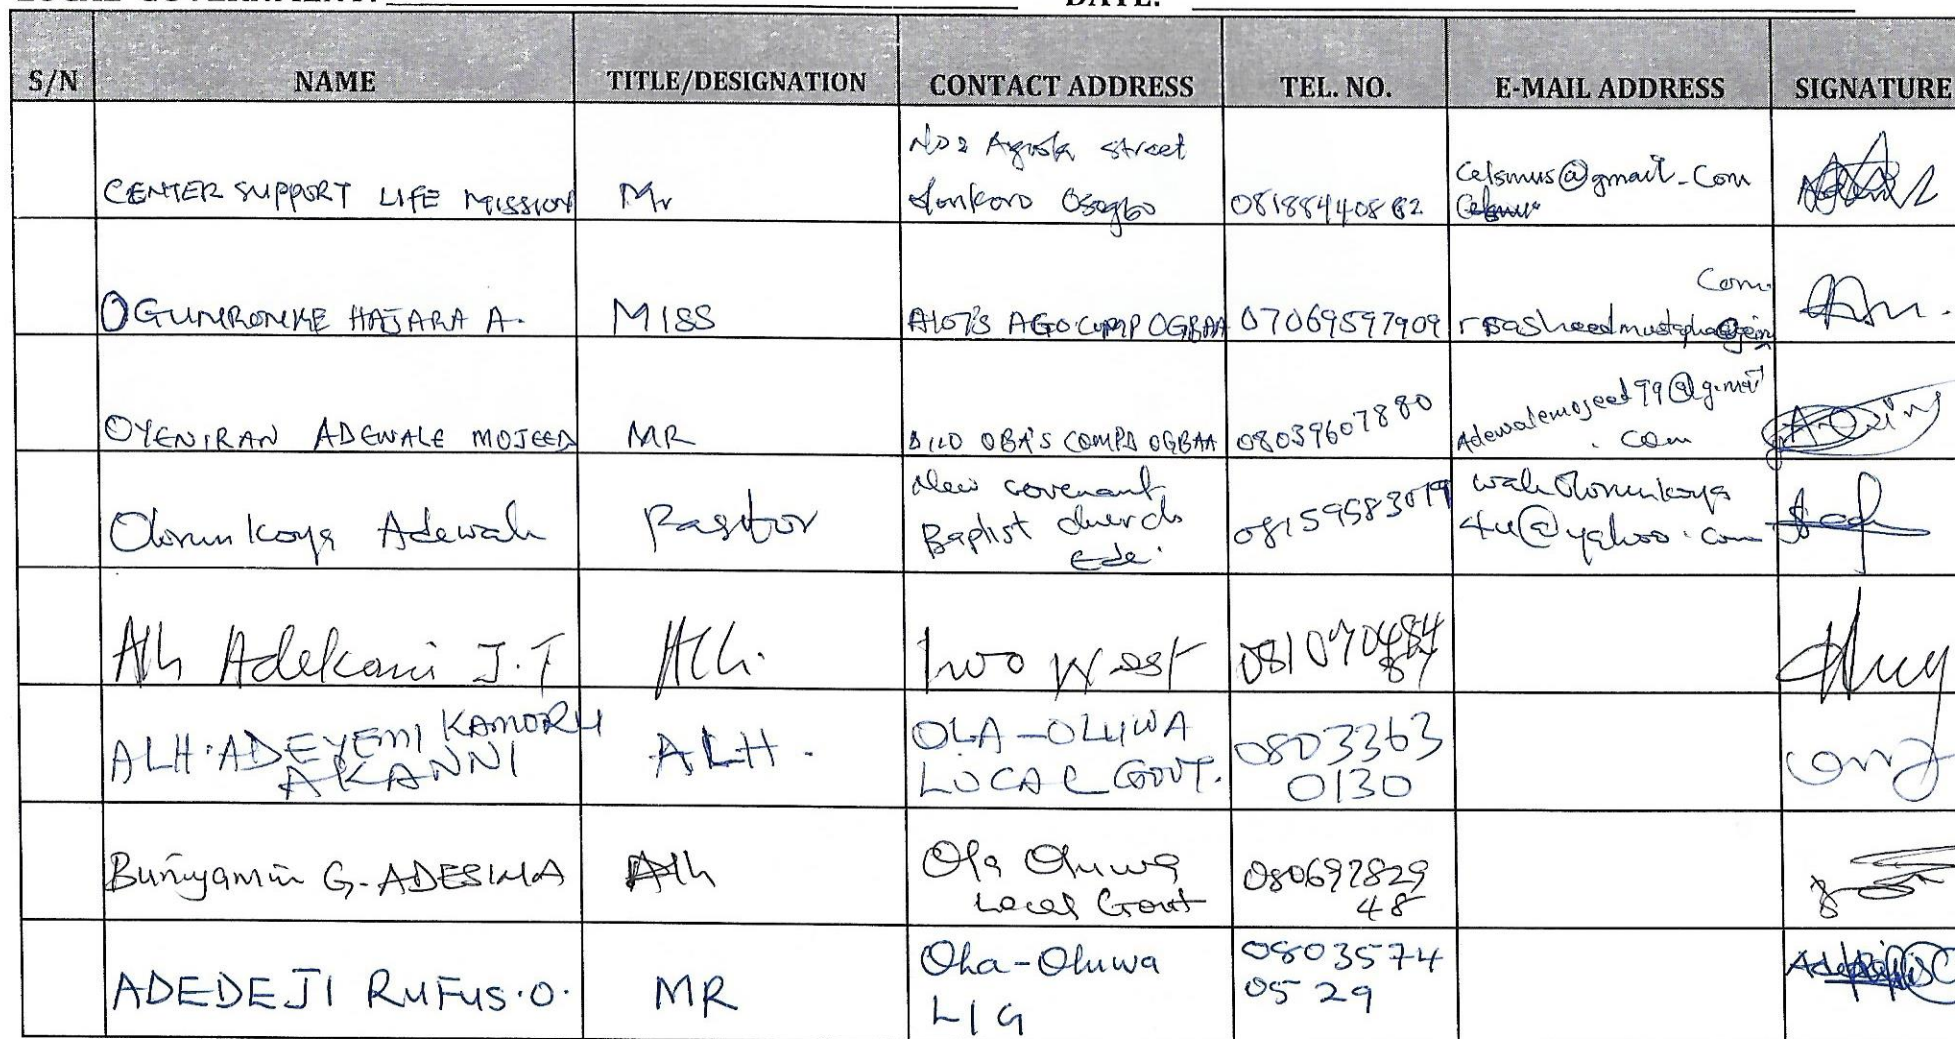 LOCAL GOVERNMENT: DATE:
S/N NAME TITLE/DESIGNATION CONTACT ADDRESS TEL. NO. E-MAIL ADDRESS SIGNATURE
CENTER SUPPORT LIFE MISSION Mr
street
Osogbo
08188440882
Celsmus@gmail.com
OGUNRONKE HAJARA A. MISS
AGO COMP OGBAA 07069597909
Com.
OYENIRAN ADEWALE MOJEED MR
OBA'S COMPD OGBAA 08039607880
Adewalemojeed99@gmail
.com
Olorunkoya Adewale Pastor
New covenant
Baptist church
Ede.
waleolorunkoya
4u@yahoo.com
Alh Adekani J.T Alh.
Iwo West
081070484
87
ALH. ADEYEMI KAMORU
AKANNI
ALH.
OLA-OLUWA
LOCAL GOVT.
0803363
0130
Buniyamin G. ADESINA Alh
Ola Oluwa
Local Govt
080692829
48
ADEDEJI RUFUS.O. MR
Ola-Oluwa
L/G
0803574
0529